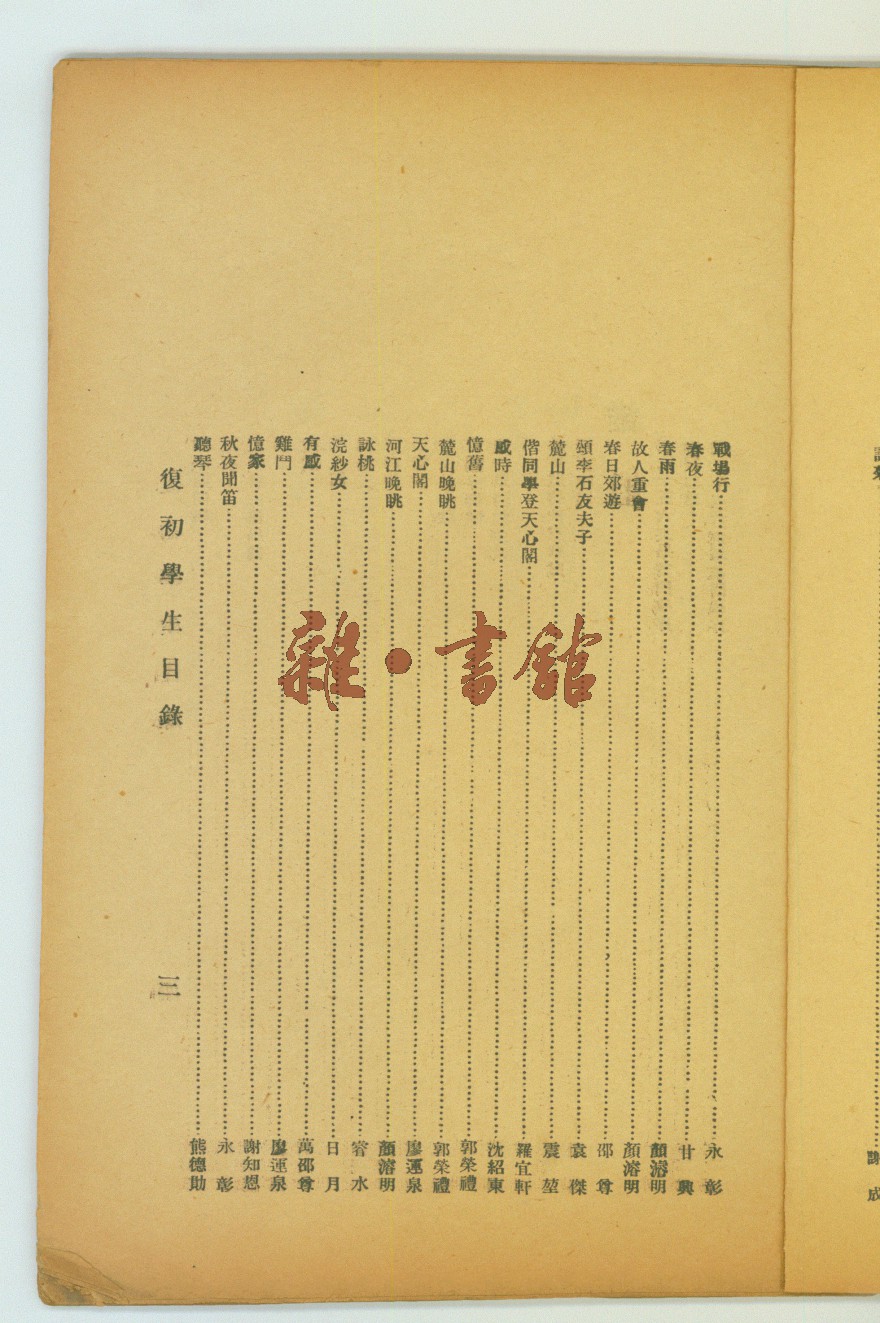 戰場行……永彰
春夜……甘興
春雨……顏濬明
故人重會……顏濬明
春日郊遊……邵尊
頭李石友夫子……袁傑
麓山……震堃
偕同學登天心閣……羅宜軒
感時……沈紹東
憶舊……郭榮禮
麓山晚眺……郭榮禮
天心閣……廖運泉
河江晚眺……顏濬明
詠桃……容水
浣紗女……日月
有感……萬邵尊
雞鬥……廖運泉
憶家……謝知恩
秋夜聞笛……永彰
聽琴……熊德助
復初學生目錄 三
雜·書館
謝成